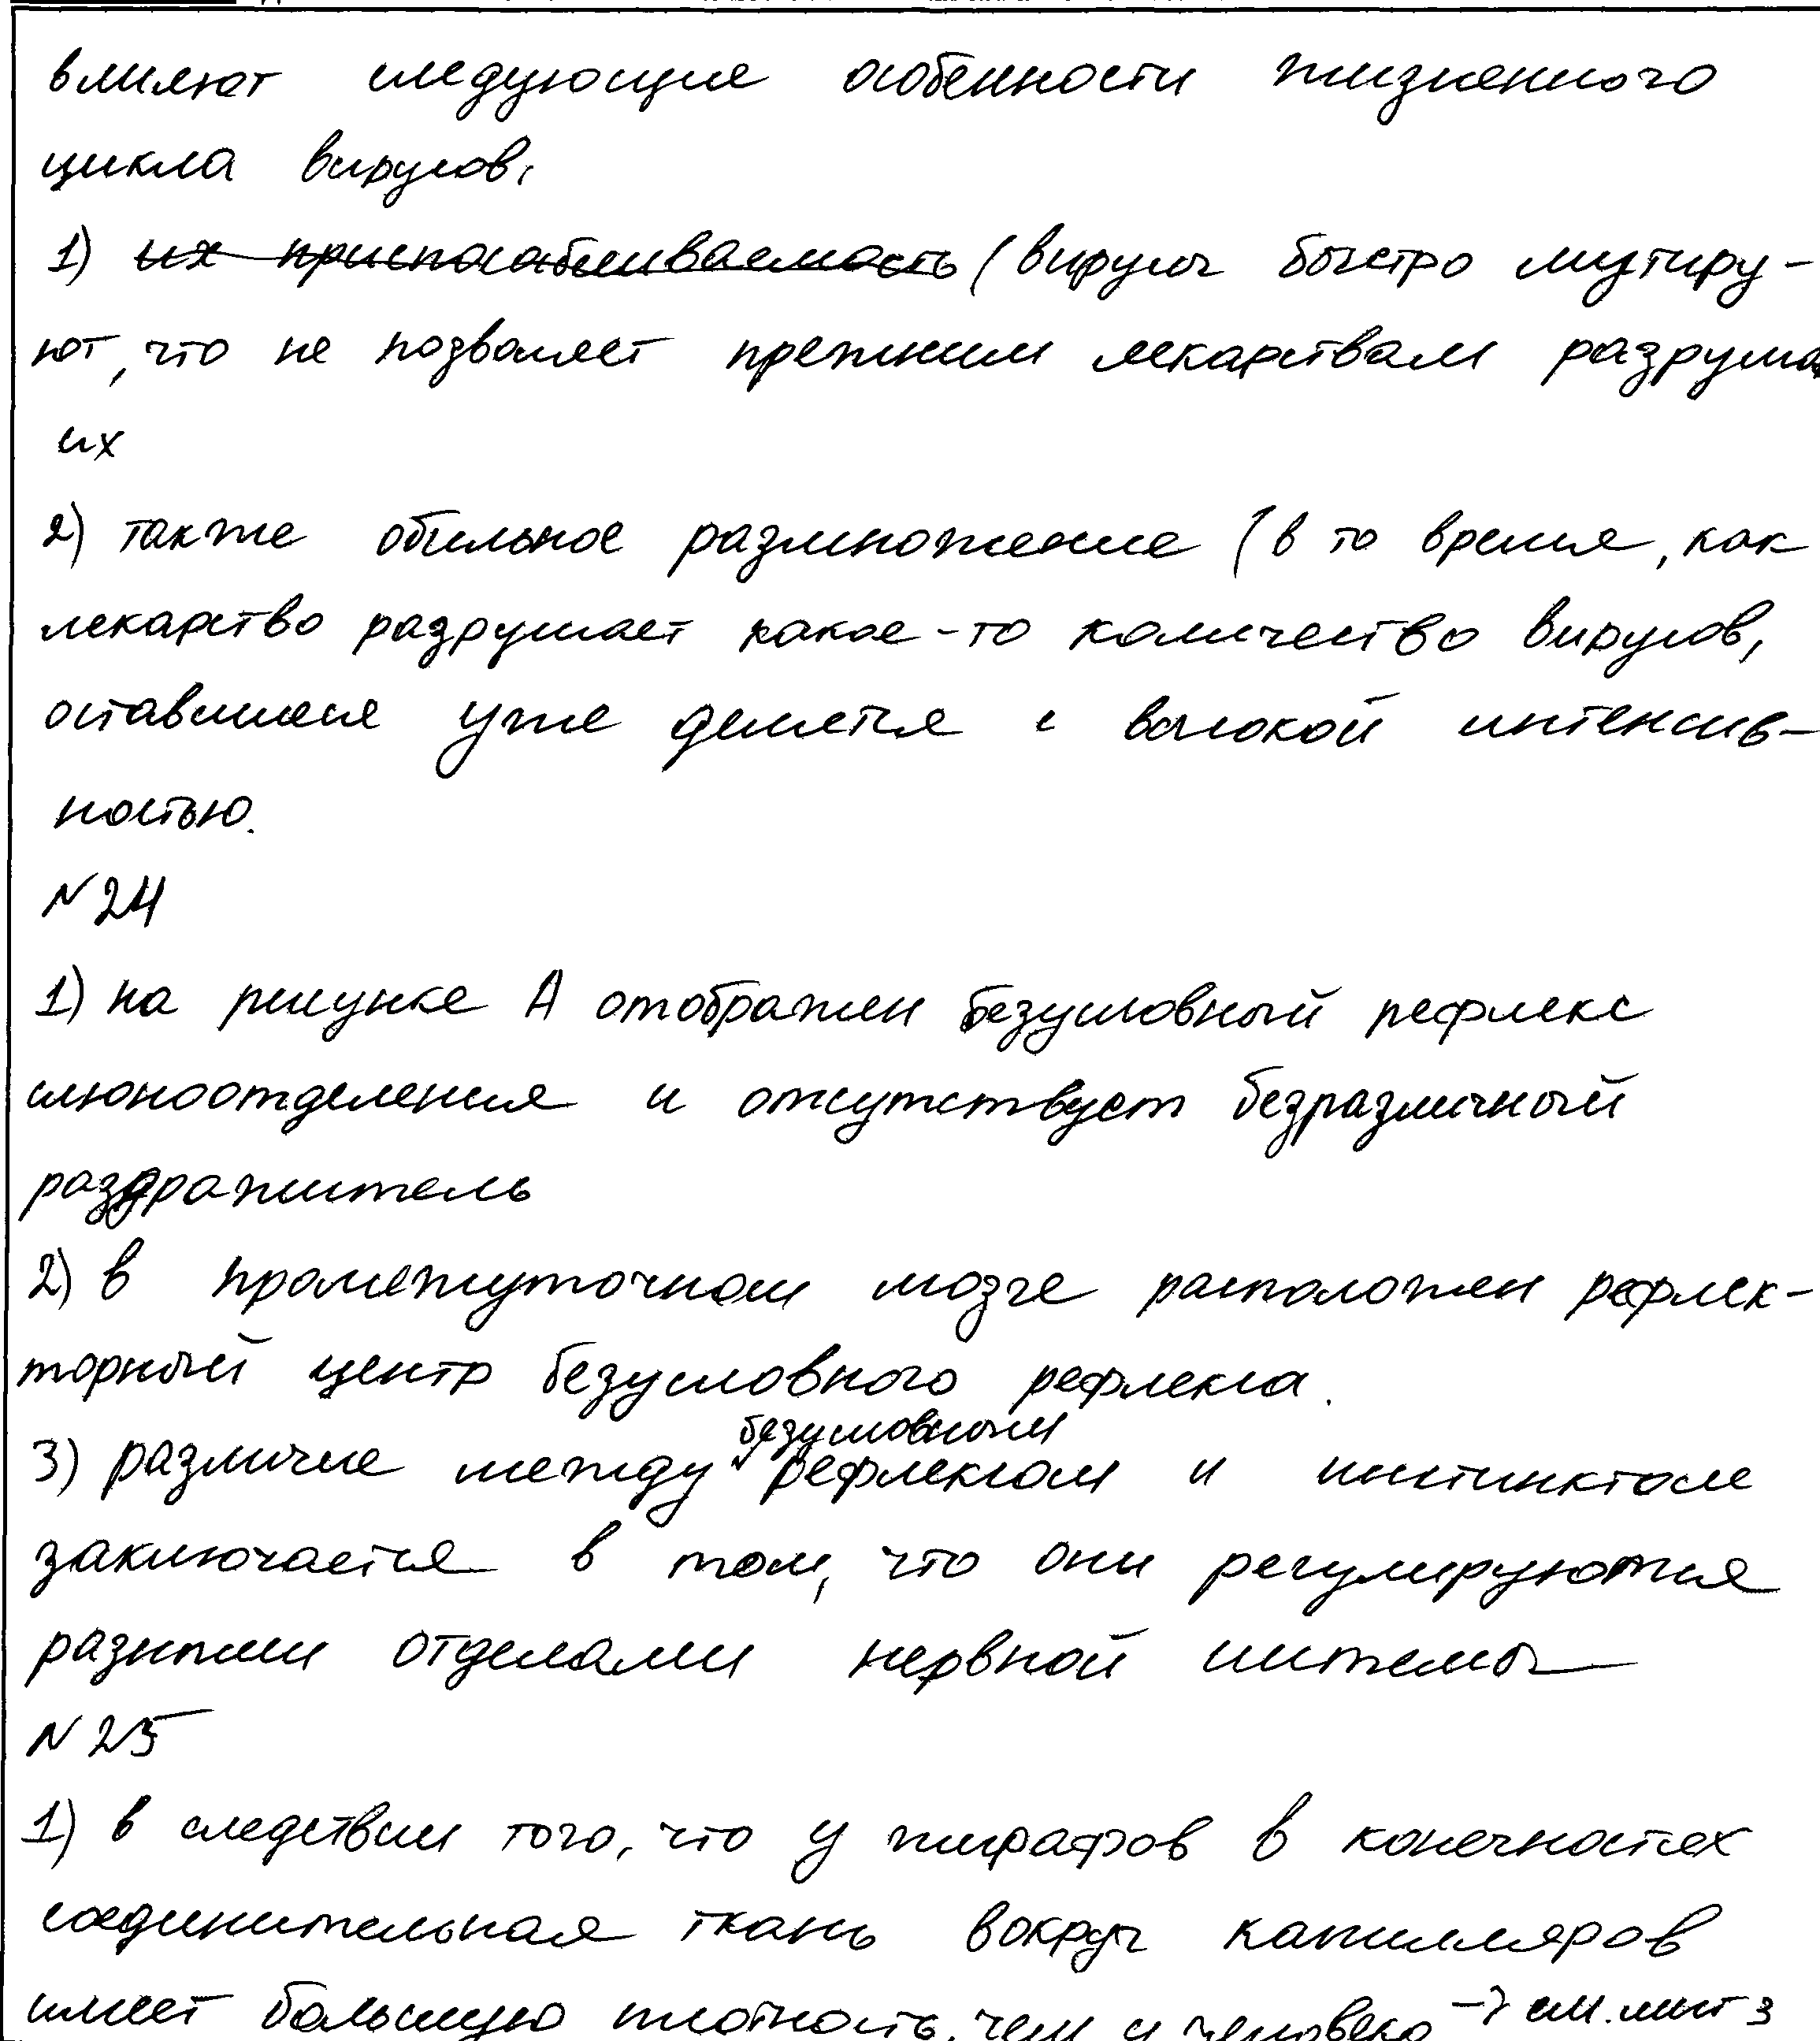 влияют следующие особенности жизненного
цикла вирусов,
1) их приспосабливаемость (вирусы быстро мутиру-
ют, что не позволяет прежним лекарствам разруша
их
2) также обильное размножение (в то время, как
лекарство разрушает какое-то количество вирусов,
оставшиеся уже делятся с высокой интенсив-
ностью.
№24
1) на рисунке А отображен безусловный рефлекс
слюноотделения и отсутствует безразличный
раздражитель
2) в промежуточном мозге расположен рефлек-
торный центр безусловного рефлекса.
безусловным
3) различие между рефлексом и инстинктом
заключается в том, что они регулируются
разными отделами нервной системы
№25
1) в следствии того, что у жирафов в конечностях
соединительная ткань вокруг капилляров
имеет большую плотность, чем у человека → см. лист 3